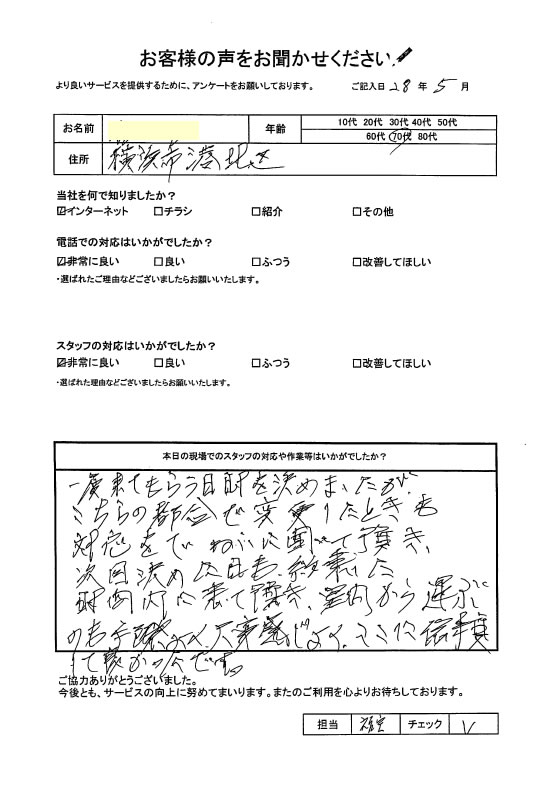 お客様の声をお聞かせください
より良いサービスを提供するために、アンケートをお願いしております。 ご記入日 28 年 5 月
お名前 年齢 10代 20代 30代 40代 50代
60代 70代 80代
住所 横浜市港北区
当社を何で知りましたか？
☑インターネット □チラシ □紹介 □その他
電話での対応はいかがでしたか？
☑非常に良い □良い □ふつう □改善してほしい
・選ばれたご理由などございましたらお願いいたします。
スタッフの対応はいかがでしたか？
☑非常に良い □良い □ふつう □改善してほしい
・選ばれた理由などございましたらお願いいたします。
本日の現場でのスタッフの対応や作業等はいかがでしたか？
一度来てもらう日時を決めましたが、
こちらの都合で変更したときも
対応をていねいに図って頂き、
次回決めた日も、約束した
時間内に来て頂き、室内から運ぶ
のも手際よく、大変感じよく、
して良かったです。
ご協力ありがとうございました。
今後とも、サービスの向上に努めてまいります。またのご利用を心よりお待ちしております。
担当 チェック